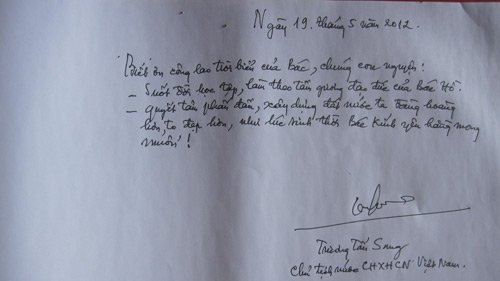 Ngày 19 tháng 5 năm 2012.
Biết ơn công lao trời biển của Bác, chúng con nguyện:
- Suốt đời học tập, làm theo tấm gương đạo đức của Bác Hồ.
- Quyết tâm phấn đấu, xây dựng đất nước ta đàng hoàng
hơn, to đẹp hơn, như lúc sinh thời Bác Kính yêu hằng mong
muốn!
Trương Tấn Sang
Chủ tịch nước CHXHCN Việt Nam.